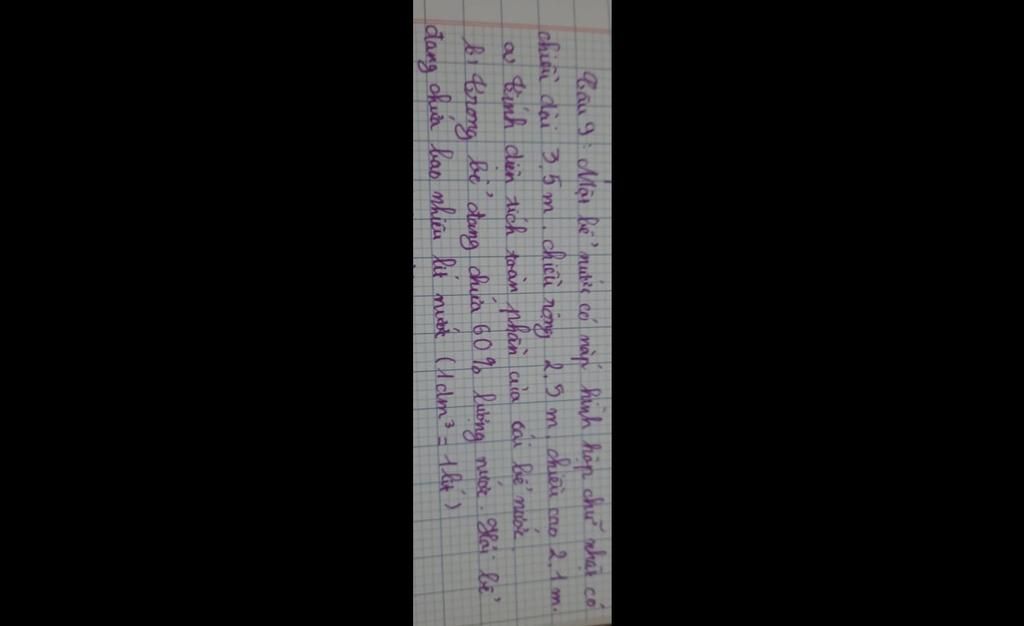 Câu 9: Một bể nước có nắp hình hộp chữ nhật có
chiều dài 3,5 m, chiều rộng 2,9 m, chiều cao 2,1 m.
a, Tính diện tích toàn phần của cái bể nước.
b, Trong bể đang chứa 60% lượng nước. Hỏi bể
đang chứa bao nhiêu lít nước (1dm³ = 1 lít)